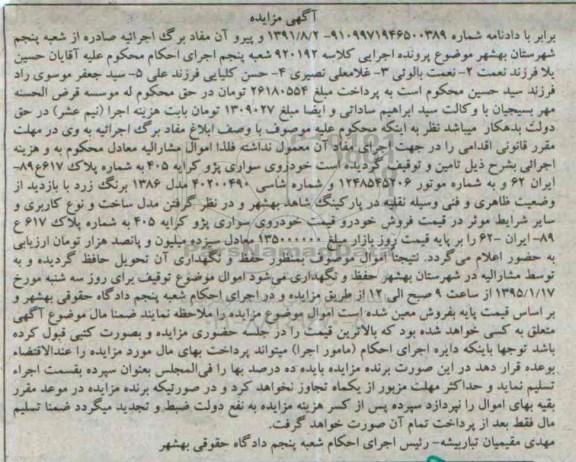 آگهی مزایده
برابر با دادنامه شماره ۹۱۰۹۹۷۱۹۴۶۵۰۰۳۸۹- ۱۳۹۱/۸/۲ و پیرو آن مفاد برگ اجرائیه صادره از شعبه پنجم
شهرستان بهشهر موضوع پرونده اجرایی کلاسه ۹۲۰۱۹۲ شعبه پنجم اجرای احکام محکوم علیه آقایان حسین
یلا فرزند نعمت ۲- نعمت بالوئی ۳- غلامعلی نصیری ۴- حسن کلیایی فرزند علی ۵- سید جعفر موسوی راد
فرزند سید حسین محکوم است به پرداخت مبلغ ۲۶۱۸۰۵۵۴ تومان در حق محکوم له موسسه قرض الحسنه
مهر بسیجیان با وکالت سید ابراهیم ساداتی و ایضا مبلغ ۱۳۰۹۰۲۷ تومان بابت هزینه اجرا (نیم عشر) در حق
دولت بدهکار میباشد نظر به اینکه محکوم علیه موصوف با وصف ابلاغ مفاد برگ اجرائیه به وی در مهلت
مقرر قانونی اقدامی را در جهت اجرای مفاد آن معمول نداشته فلذا اموال مشارالیه معادل محکوم به و هزینه
اجرائی بشرح ذیل تامین و توقیف گردیده است خودروی سواری پژو کرایه ۴۰۵ به شماره پلاک ۶۱۷ع۸۹-
ایران ۶۲ و به شماره موتور ۱۲۴۸۵۴۵۲۰۶ و شماره شاسی ۴۰۲۰۰۴۹۰ مدل ۱۳۸۶ برنگ زرد با بازدید از
وضعیت ظاهری و فنی وسیله نقلیه در پارکینگ شاهد بهشهر و در نظر گرفتن مدل ساخت و نوع کاربری و
سایر شرایط موثر در قیمت فروش خودرو قیمت خودروی سواری پژو کرایه ۴۰۵ به شماره پلاک ۶۱۷ ع
۸۹- ایران -۶۲ را بر پایه قیمت روز بازار مبلغ ۱۳۵۰۰۰۰۰۰ معادل سیزده میلیون و پانصد هزار تومان ارزیابی
به حضور اعلام می‌گردد. نتیجتا اموال معرفی بمنظور حفظ و نگهداری آن تحویل حافظ گردیده و به
توسط مشارالیه در شهرستان بهشهر حفظ و نگهداری می‌شود اموال موضوع توقیف برای روز سه شنبه مورخ
۱۳۹۵/۱/۱۷ از ساعت ۹ صبح الی ۱۲ از طریق مزایده و در اجرای احکام شعبه پنجم دادگاه حقوقی بهشهر و
بر اساس قیمت پایه بفروش معین شده است اموال موضوع مزایده را ملاحظه نمایند ضمنا مال موضوع آگهی
متعلق به کسی خواهد شده بود که بالاترین قیمت را در جلسه حضوری مزایده و بصورت کتبی قبول کرده
باشد توجها باینکه دایره اجرای احکام (مامور اجرا) میتواند پرداخت بهای مال مورد مزایده را عندالاقتضاء
بوعده قرار دهد در این صورت برنده مزایده باید ده درصد بها را فی‌المجلس بعنوان سپرده بقسمت اجراء
تسلیم نماید و حداکثر مهلت مزبور از یکماه تجاوز نخواهد کرد و در صورتیکه برنده مزایده در موعد مقرر
بقیه بهای اموال را نپردازد سپرده پس از کسر هزینه مزایده به نفع دولت ضبط و تجدید میگردد ضمنا تسلیم
مال فقط بعد از پرداخت تمام آن صورت خواهد گرفت.
مهدی مقیمیان نباربیشه- رئیس اجرای احکام شعبه پنجم دادگاه حقوقی بهشهر